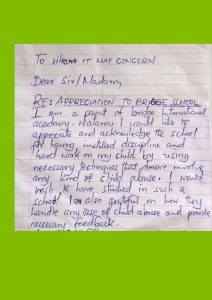 TO WHOM IT MAY CONCERN
Dear Sir/Madam,
RE: APPRECIATION TO BRIDGE SCHOOL
I am a parent of bridge international
academy - I would like to
appreciate and acknowledge the school
for having instilled discipline and
hard work on my child by using
necessary techniques that doesn't involve
any kind of child abuse. I would
wish to have studied in such a
school. I am also grateful on how they
handle any case of child abuse and provide
necessary feedback.